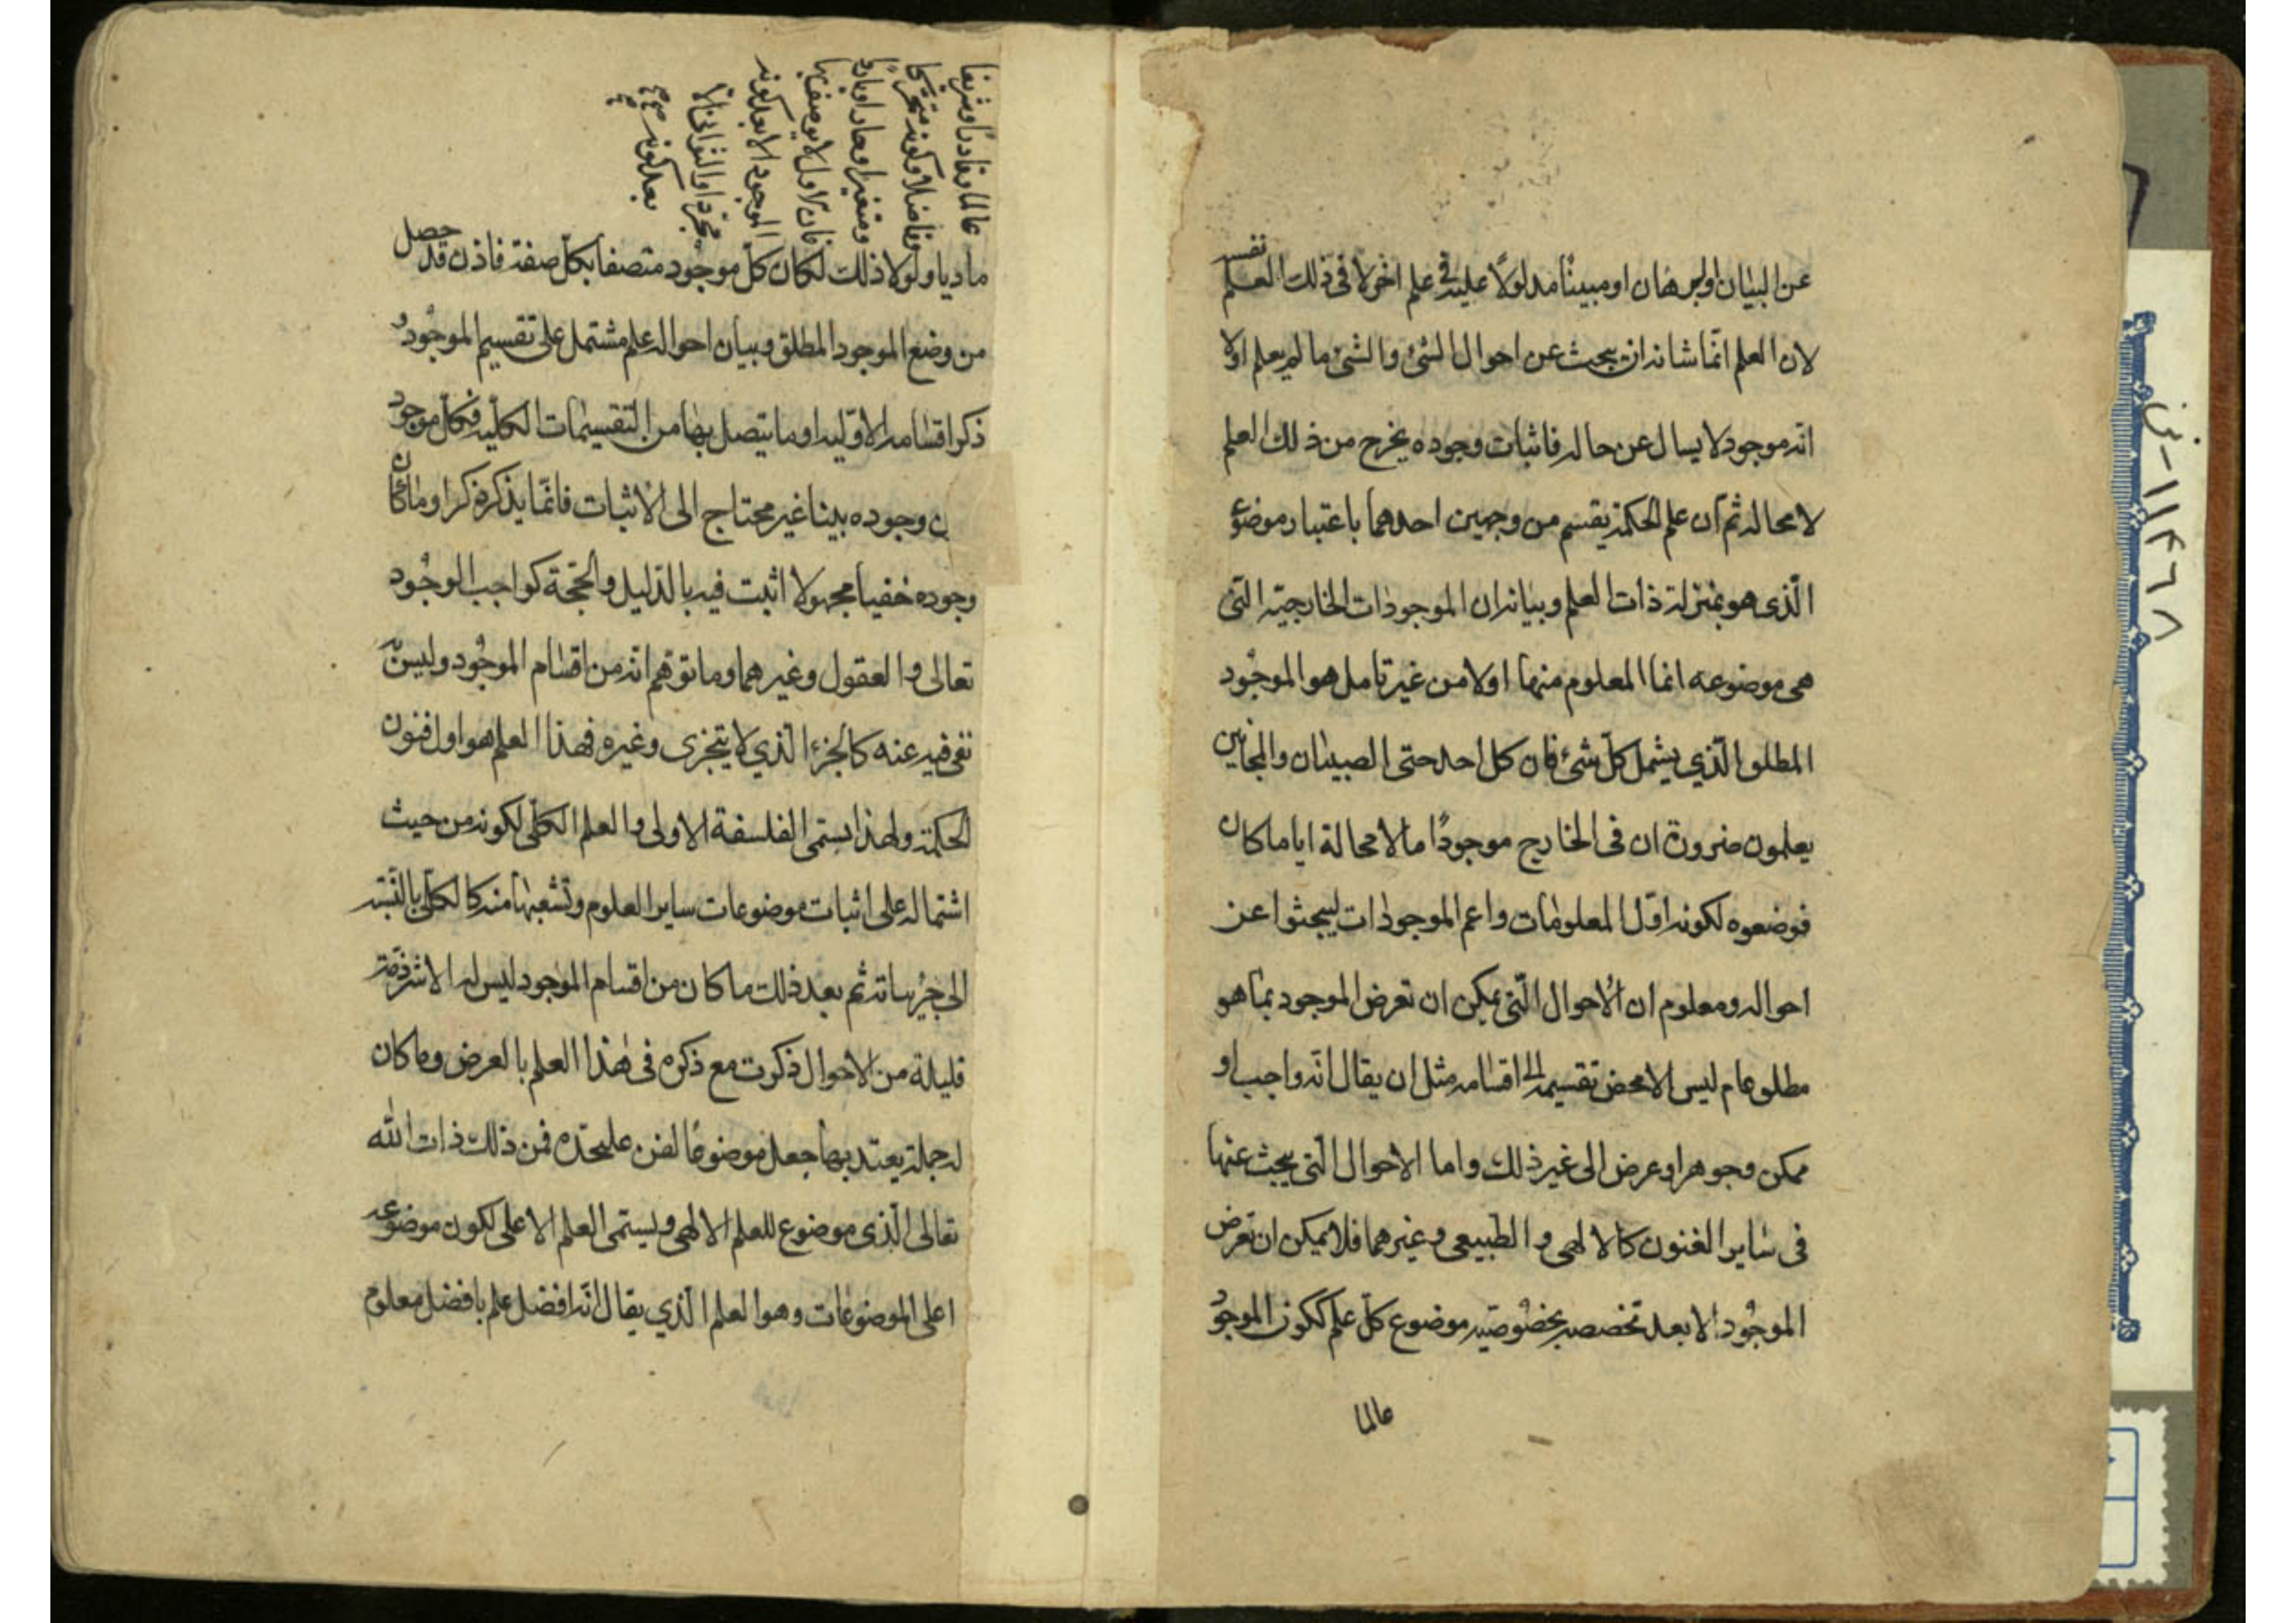 عن البيان والبرهان او مبينًا مدلولًا عليه في علم اخر لا فى ذلك العلم نفسه
لان العلم انّما شانه ان يبحث عن احوال الشئ والشئ ما لم يعلم اولا
انه موجود لا يسال عن حاله فاثبات وجوده يخرج من ذلك العلم
لا محاله ثم ان علم الحكمة يقسم من وجهين احدهما باعتبار موضوعه
الّذى هو بمنزلة ذات العلم وبيانه ان الموجودات الخارجيّه الّتى
هى موضوعه انما المعلوم منها اولا من غير تامل هو الموجود
المطلق الّذي يشمل كلّ شئ فان كل احد حتى الصبيان والمجانين
يعلمون ضرورة ان فى الخارج موجودًا ما لا محالة اياما كان
فوضعوه لكونه اوّل المعلومات واعم الموجودات ليبحثوا عن
احواله ومعلوم ان الاحوال الّتى يمكن ان تعرض الموجود بما هو
مطلق عام ليس الا محض تقسيمه الى اقسامه مثل ان يقال انّه واجب او
ممكن وجوهر او عرض الى غير ذلك واما الاحوال الّتى يبحث عنها
فى ساير الفنون كالالهى والطبيعى وغيرهما فلا يمكن ان تعرض
الموجود الا بعد تخصصه بخصوصيّه موضوع كلّ علم ككون الموجود
عالما
عالما وقادرًا وشريفا
وفاضلا وكونه متحركا
ومتغيرا وحارا وباردا
فان الاول لا يوصف بها
الموجود الا بعد كونه
مجردا والثوانى الا
بعد كونه صح
ماديا ولولا ذلك لكان كلّ موجود متصفا بكلّ صفة فاذن قد حصل
من وضع الموجود المطلق وبيان احواله علم مشتمل على تقسيم الموجود و
ذكر اقسامه الاوّليه وما يتصل بها من التقسيمات الكليّه فكلّ موجود
ن وجوده بينا غير محتاج الى الاثبات فانّما يذكر ذكرا وما كان
وجوده خفيا مجهولا اثبت فيه بالدّليل والحجّة كواجب الوجود
تعالى والعقول وغيرهما وما توهم انّه من اقسام الموجود وليس منه
نفى فيه عنه كالجزء الّذي لا يتجزى وغيره فهذا العلم هو اول فنون
الحكمة ولهذا يسمّى الفلسفة الاولى والعلم الكلّى لكونه من حيث
اشتماله على اثبات موضوعات ساير العلوم وتشعبها منه كالكلّى بالنّسبة
الى جزئياته ثم بعد ذلك ما كان من اقسام الموجود ليس له الا شرذمة
قليلة من الاحوال ذكرت مع ذكره فى هذا العلم بالعرض وما كان
له جملة يعتد بها جعل موضوعًا لفن عليحده فمن ذلك ذات الله
تعالى الّذى موضوع للعلم الالهى ويسمّى العلم الاعلى لكون موضوعه
اعلى الموضوعات وهو العلم الّذي يقال انّه افضل علم بافضل معلوم
١١٤٦٨